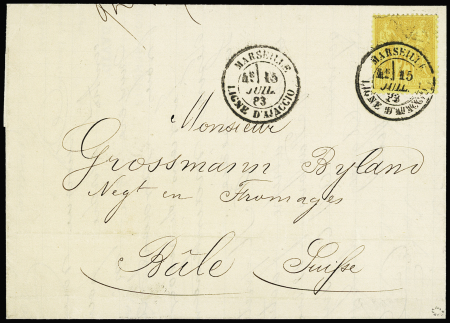 MARSEILLE
4E 15
JUIL.
83
LIGNE D'AJACCIO
MARSEILLE
4E 15
JUIL.
83
LIGNE D'AJACCIO
Monsieur
Grossmann Byland
Negt en Fromages
Bâle Suisse